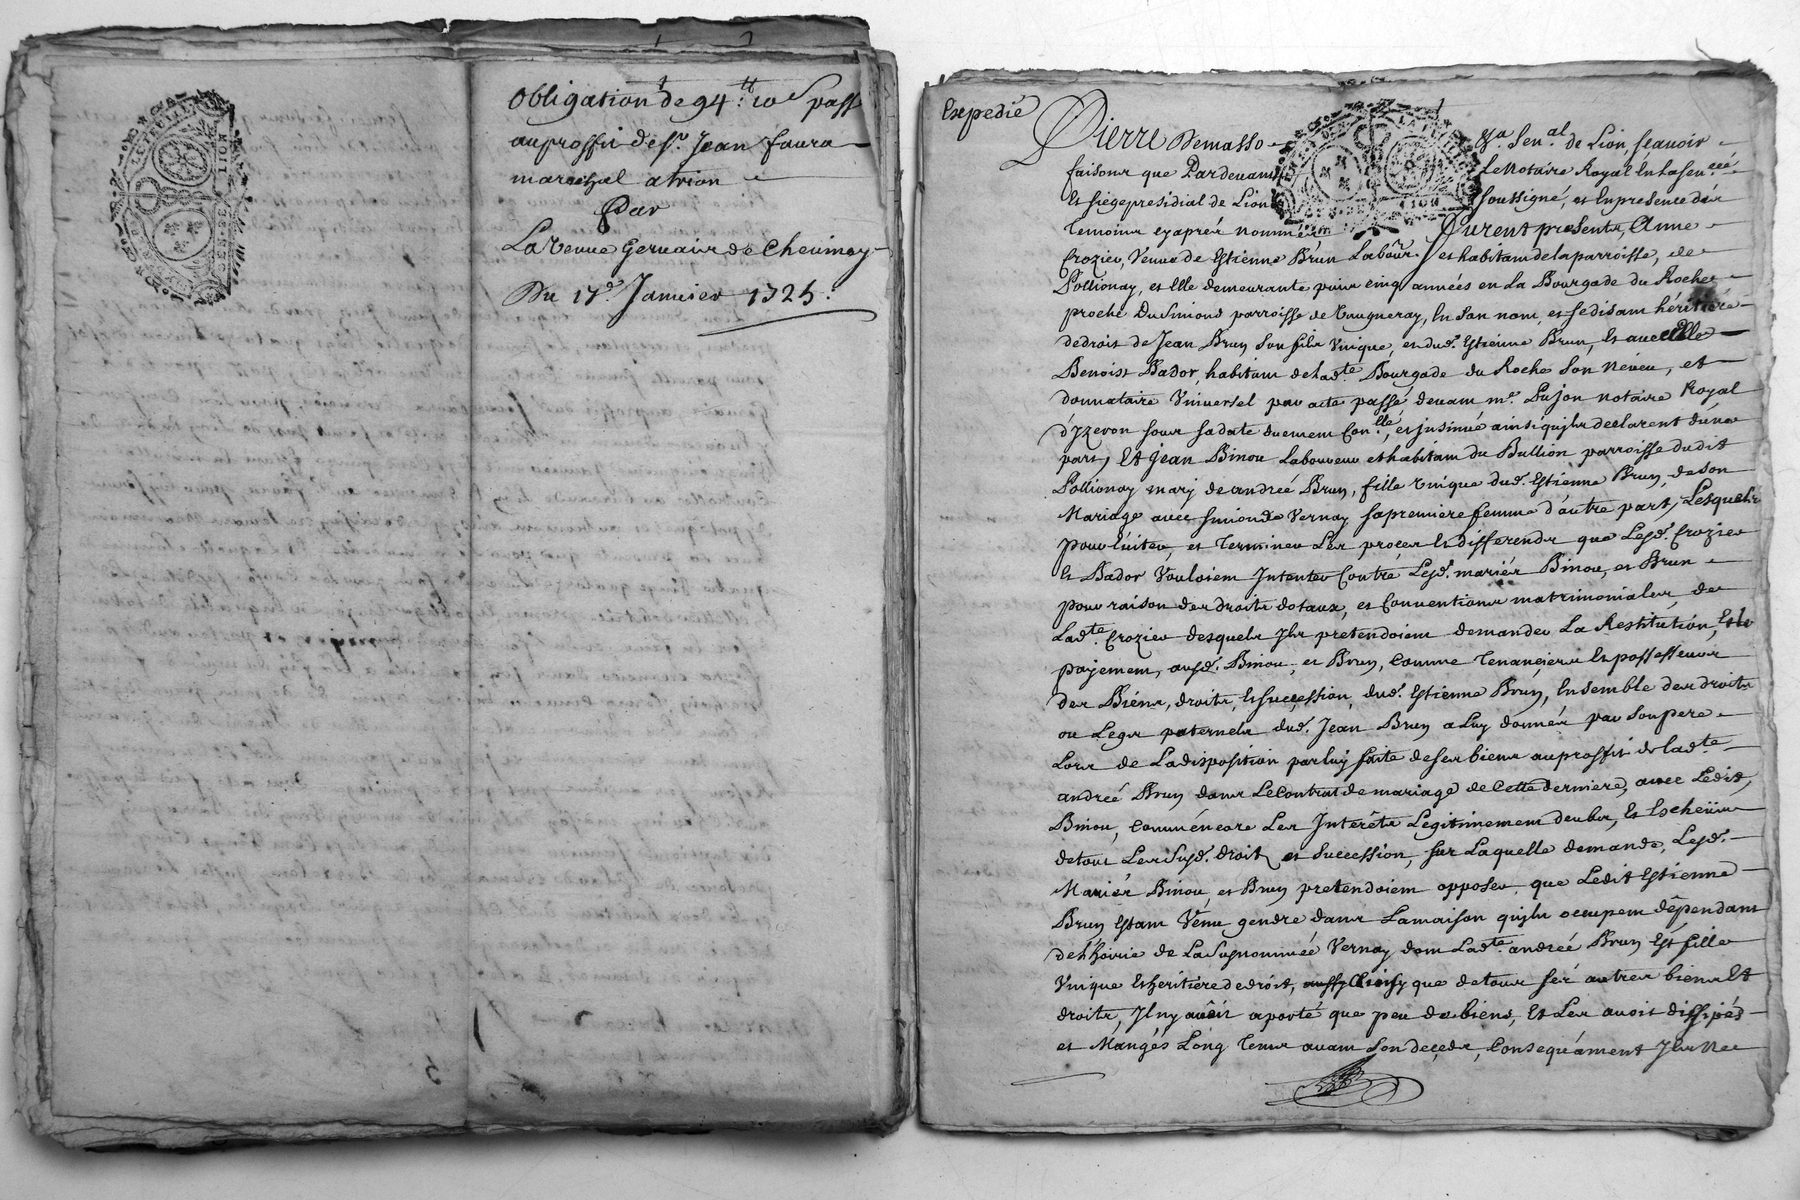 Obligation de 94 ᵗᵗ: 10ˢ pass
au proffit de sʳ. Jean faure
marechal a trion
Par
La veuve Gervais de Chevinay
Du 17ᵉ. Janvier 1725.
GENER DE LION
Expedié
Pierre Demasso
gᵃ. Senᵃˡ de Lion, scavoir
faisons que Pardevant
Le Notaire Royal En la senᶜᵉᵉ
Et siege presidial de Lion
soussigné, et En presence des
temoins cy aprés nommés
furent presents, Anne
Crozier, Veuve de Estienne Brun Labour. et habitant de la parroisse, de
Pollionay, et Elle demeurante puis cinq années en La Bourgade du Roche
proche Dusimond parroisse de Vaugneray, En son nom, et se disant héritiére
de droit de Jean Brun son fils Vnique, et dud. Estienne Brun, Et avec Elle
Benoist Bador, habitant de ladᵗᵉ. Bourgade du Roche son Néveu, et
donnataire Vniversel par acte passé devant mᵉ. Dujon notaire Royal
d'yzeron sous sa date duement Conˡˡᵉ, et jnsinué ainsi qu'jls declarent d'une
part, Et Jean Binou Laboureur et habitant du Bullion parroisse dudit
Pollionay mary de andreé Brun, fille vnique dud. Estienne Brun, de son
Mariage avec simonde Vernay sa premiere femme d'autre part, Lesquels
pour Euiter, et Terminer Les procez Et differends que Lesd. Crozier
Et Bador Vouloient Jntenter Contre Lesd. mariés Binou, et Brun
pour raison des droits dotaux, et Conventions matrimoniales, de
Ladᵗᵉ. Crozier desquels Jls pretendoient demander La Restitution, Et le
payement, ausd. Binou, et Brun, Comme Tenanciers Et possesseurs
des Biens, droits, Et succession, dud. Estienne Brun, Ensemble des droits
ou Legs paternels dud. Jean Brun a Luy donnés par son pere
Lors de La disposition par luy faite de ses biens au proffit de ladᵗᵉ
andreé Brun dans Le Contrat de mariage de Cette derniere, avec Ledit
Binou, Comm'encore Les Jnterêts Legitimement deubs, Et Escheüs
de tous Les susd. droits et succession, sur Laquelle demande, Lesd.
Mariés Binou, et Brun pretendoient opposer que Ledit Estienne
Brun Estant Venu gendre dans La maison qu'jls occupent dépendant
de L'hoirie de La susnommée Vernay dont Ladᵗᵉ andreé Brun Est fille
Vnique Et heritiere de droit, que de tous ses autres biens Et
droits, Jl n'y avoit aporté que peu de biens, Et Les avoit dissipés
et Mangés Long Tems avant son decede, Consequament Jls Ne